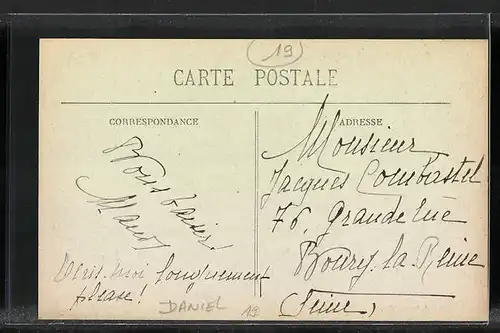 19
CARTE POSTALE
CORRESPONDANCE
ADRESSE
Monsieur
Jacques Combastel
76, Grande rue
Bourg-la-Reine
(Seine)
Bons baisers
Maud
Ecris-moi longuement
please!
DANIEL
19